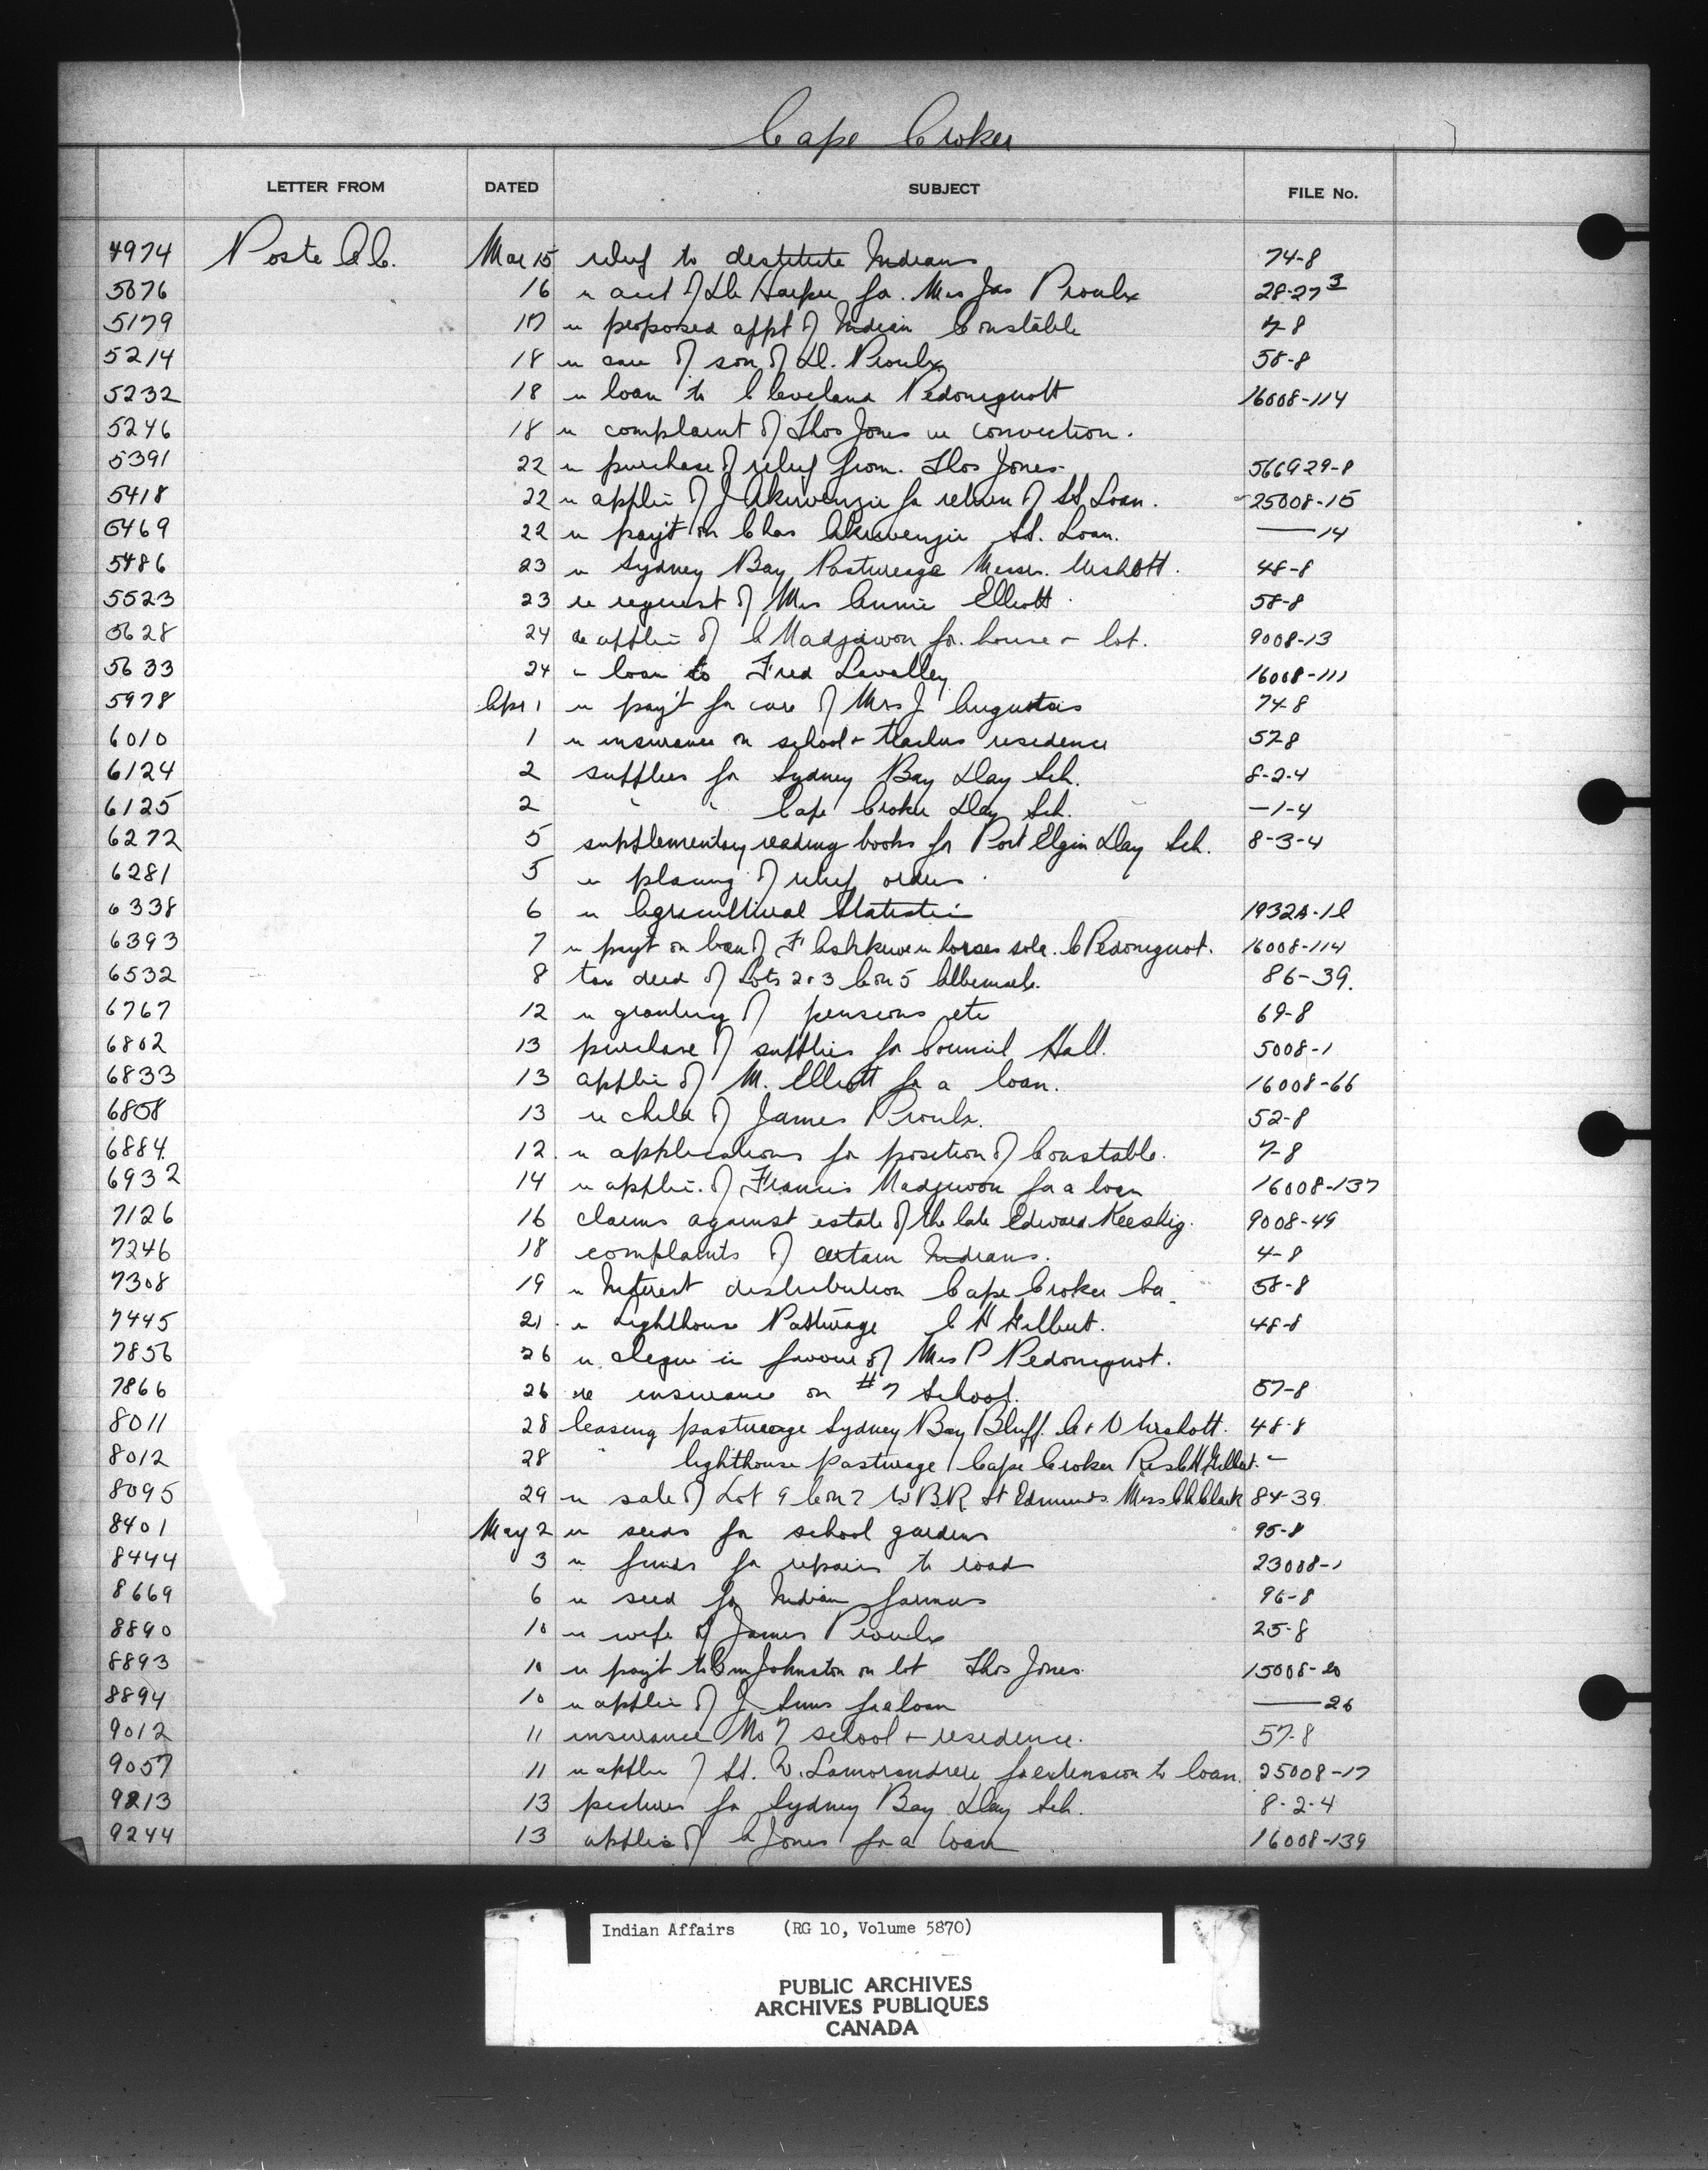 Cape Croker
LETTER FROM DATED SUBJECT FILE No.
4974 Poste A.C. Mar 15 relief to destitute Indians 74-8
5076 16 re acct of Dr Harper for Mrs Jas Proulx 28-27 3
5179 17 re proposed appt of Indian Constable 7-8
5214 18 re care of son of D. Proulx 58-8
5232 18 re loan to Cleveland Pedoniquott 16008-114
5246 18 re complaint of Thos Jones re conviction.
5391 22 re purchase of relief from Thos Jones 56929-8
5418 22 re applic of J Akiwenzie for return of St. Loan. 25008-15
5469 22 re pay't on Chas Akiwenzie St. Loan. —14
5486 23 re Sydney Bay Pasturage Messrs. 48-8
5523 23 re request of Mrs Annie Elliott 58-8
5628 24 re applic of C Madjiwon for house + lot. 9008-13
5633 24 re loan to Fred Lavalley 16008-111
5978 Apr 1 re pay't for care of Mrs J Augustus 74-8
6010 1 re insurance on school + teachers residence 57-8
6124 2 supplies for Sydney Bay Day Sch. 8-2-4
6125 2 " " Cape Croker Day Sch. —1-4
6272 5 supplementary reading books for Port Elgin Day Sch. 8-3-4
6281 5 re placing of relief orders
6338 6 re Agricultural Statistics 1932A-18
6393 7 re payt on loan of F Ashkewe re horses sold. C Pedoniquot. 16008-114
6532 8 tax deed of Lots 2+3 Con 5 Albemarle. 86-39.
6767 12 re granting of pensions etc 69-8
6802 13 purchase of supplies for Council Hall. 5008-1
6833 13 applic of M. Elliott for a loan. 16008-66
6858 13 re child of James Proulx. 52-8
6884 12. re applications for position of Constable. 7-8
6932 14 re applic. of Francis Madjiwon for a loan 16008-137
7126 16 claims against estate of the late Edward Keeshig. 9008-49
7246 18 complaints of certain Indians. 4-8
7308 19 re Interest distribution Cape Croker Ba. 58-8
7445 21 re Lighthouse Pasturage C H Gilbert. 48-8
7856 26 re cheque in favour of Mrs P Pedoniquot.
7866 26 re insurance on #7 School. 57-8
8011 28 leasing pasturage Sydney Bay Bluff. 48-8
8012 28 " lighthouse pasturage Cape Croker Res C H Gilbert. -
8095 29 re sale of Lot 9 Con 2 W.B.R. St Edmunds. Miss Clark 84-39
8401 May 2 re seeds for school gardens 95-8
8444 3 re funds for repairs to road 23008-1
8669 6 re seed for Indian farmers 96-8
8890 10 re wife of James Proulx 25-8
8893 10 re pay't to Johnston on lot Thos Jones 15008-20
8894 10 re applic of J. for a loan —26
9012 11 insurance No 7 school + residence. 57-8
9057 11 re applic of St. W. Lamorandiere for extension to loan. 25008-17
9213 13 pictures for Sydney Bay Day Sch. 8-2-4
9244 13 applic of C Jones for a loan 16008-139
Indian Affairs (RG 10, Volume 5870)
PUBLIC ARCHIVES
ARCHIVES PUBLIQUES
CANADA